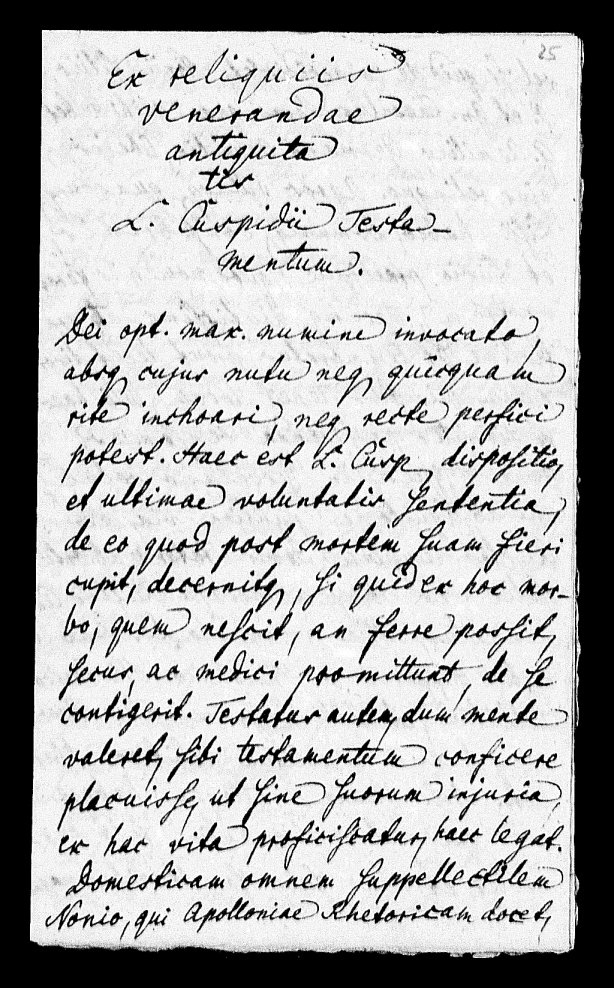 25
Ex reliquiis
venerandae
antiquita
tis
L. Cuspidii Testa-
mentum.
Dei opt. max. numine invocato,
absq cujus nutu neq quicquam
rite inchoari, neq recte perfici
potest. Haec est L. Cusp, dispositio,
et ultimae voluntatis sententia,
de eo quod post mortem suam fieri
cupit, decernitq, si quid ex hoc mor-
bo, quem nescit, an ferre possit,
secus, ac medici promittunt, de se
contigerit. Testatus autem, dum mente
valeret, sibi testamentum conficere
placuisse, ut sine suorum injuria,
ex hac vita proficiscatur, haec legat.
Domesticam omnem suppellectilem
Nonio, qui Apolloniae Rhetoricam docet,